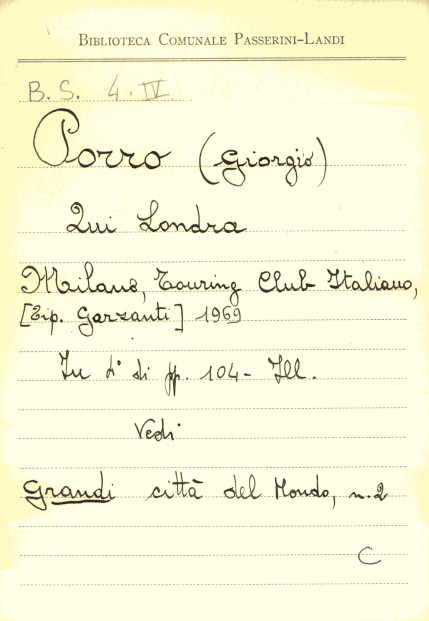 BIBLIOTECA COMUNALE PASSERINI-LANDI
B. S. 4. IV
Porro (Giorgio)
Qui Londra
Milano, Touring Club Italiano,
[Tip. Garzanti] 1969
In 4° di pp. 104 - Ill.
Vedi
Grandi città del Mondo, n. 2
C